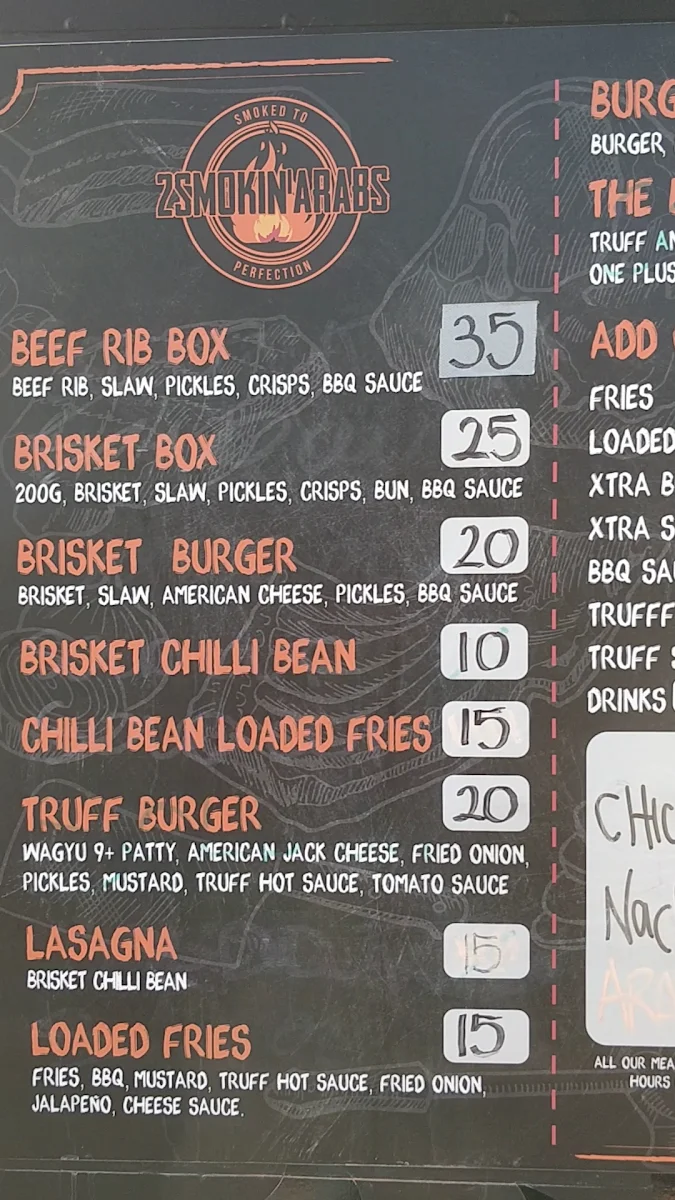 SMOKED TO
2SMOKIN'ARABS
PERFECTION
BEEF RIB BOX 35
BEEF RIB, SLAW, PICKLES, CRISPS, BBQ SAUCE
BRISKET BOX 25
200G, BRISKET, SLAW, PICKLES, CRISPS, BUN, BBQ SAUCE
BRISKET BURGER 20
BRISKET, SLAW, AMERICAN CHEESE, PICKLES, BBQ SAUCE
BRISKET CHILLI BEAN 10
CHILLI BEAN LOADED FRIES 15
TRUFF BURGER 20
WAGYU 9+ PATTY, AMERICAN JACK CHEESE, FRIED ONION,
PICKLES, MUSTARD, TRUFF HOT SAUCE, TOMATO SAUCE
LASAGNA 15
BRISKET CHILLI BEAN
LOADED FRIES 15
FRIES, BBQ, MUSTARD, TRUFF HOT SAUCE, FRIED ONION,
JALAPEÑO, CHEESE SAUCE.
BURG
BURGER,
THE
TRUFF AN
ONE PLUS
ADD
FRIES
LOADED
XTRA B
XTRA S
BBQ SAU
TRUFFF
TRUFF S
DRINKS
CHIC
Nac
ALL OUR MEA
HOURS